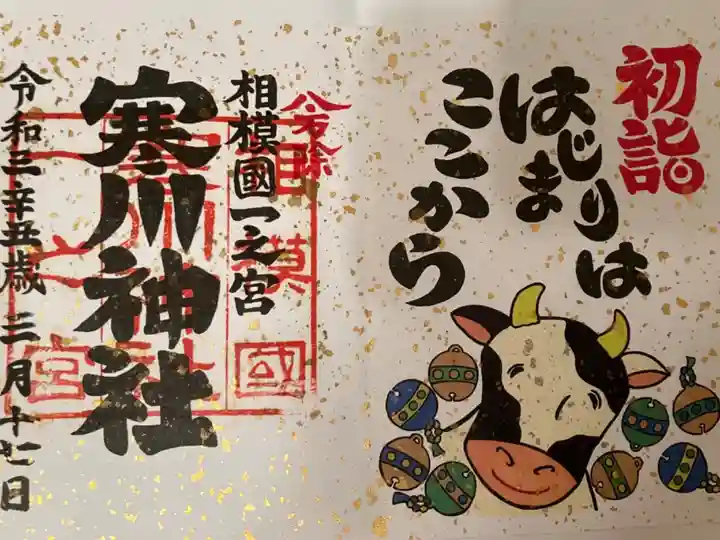 初詣
はじまりは
ここから
八方除
相模國一之宮
寒川神社
令和三辛丑歳 三月十七日
相模國
一之宮